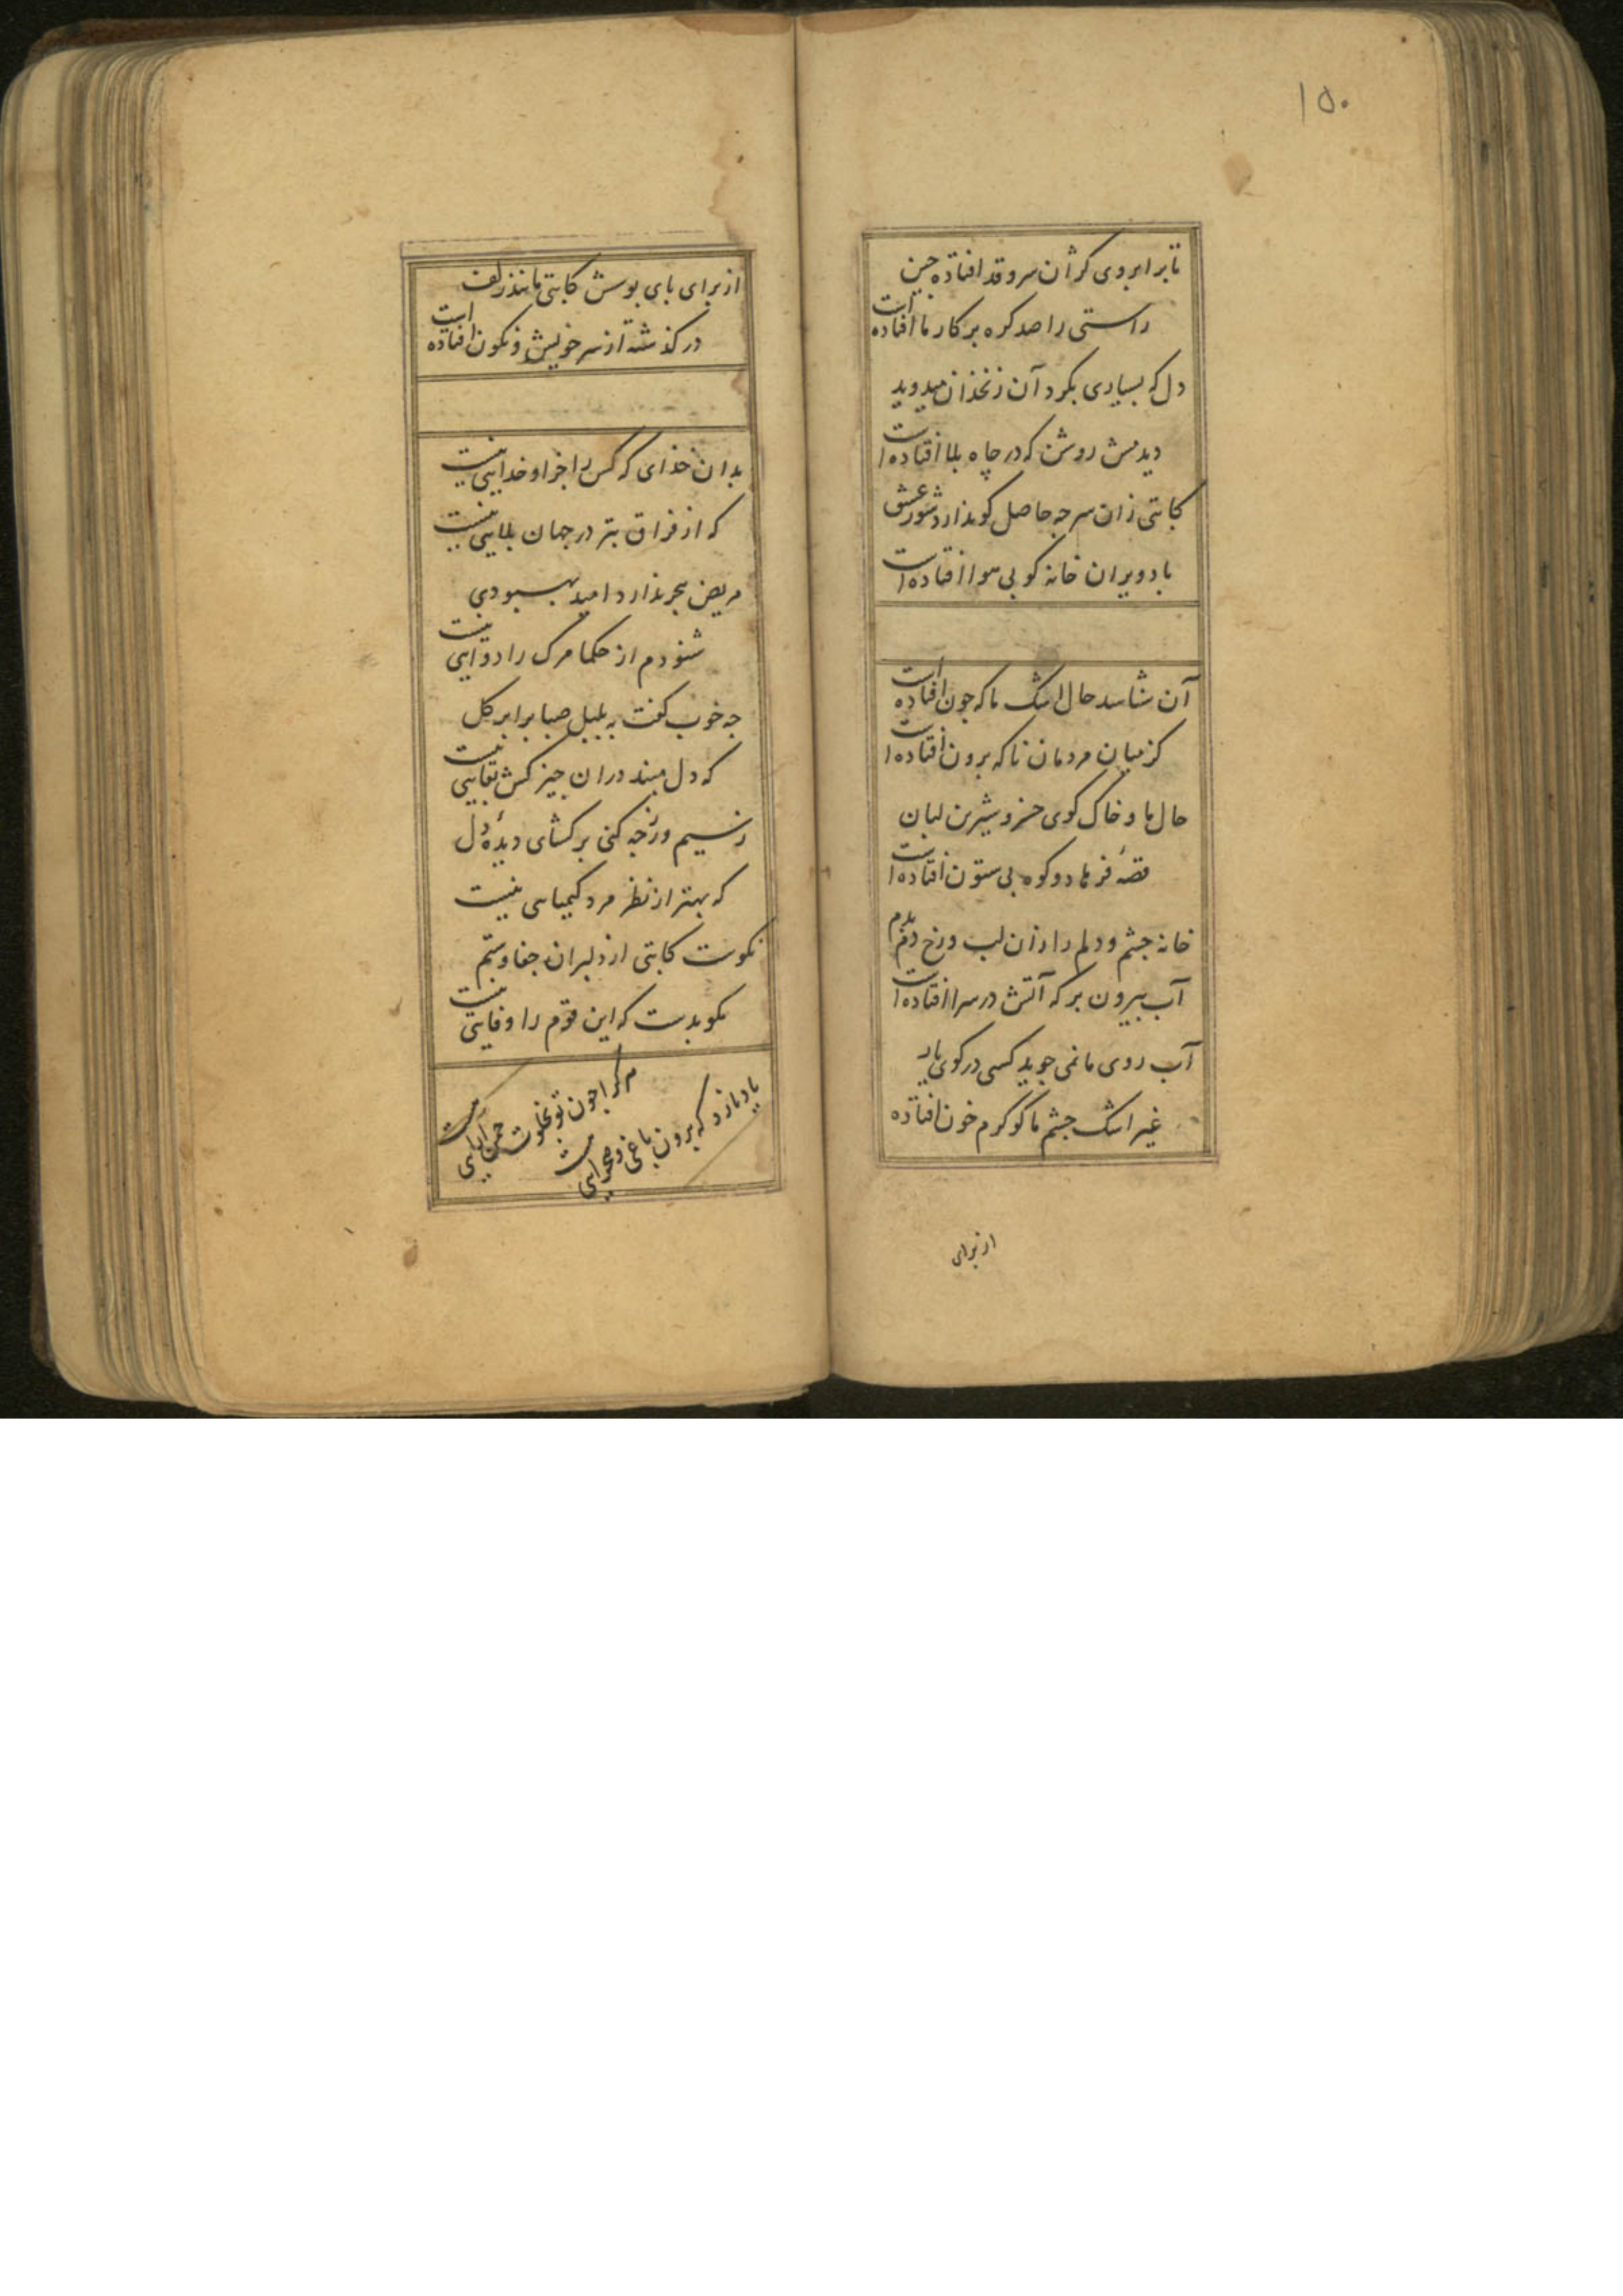 ۱۵۰
تا بر ابروی کژ آن سرو قد افتاده چین
راستی را صد کره بر کار ما افتاده است
دل که بسیاری بکرد آن زنخدان میدوید
دیدمش روشن که در چاه بلا افتاده است
کاتبی زان سر چه حاصل کو ندارد شور عشق
باد ویران خانه کو بی هوا افتاده است
آن شناسد حال اشک ما که چون افتاده است
کز میان مردمان ناکه برون افتاده است
حال ما و خاک کوی خسرو شیرین لبان
قصهٔ فرهاد و کوه بی ستون افتاده است
خانه چشم و دلم را زان لب و رخ دم بدم
آب بیرون بر که آتش در سرا افتاده است
آب روی ما نمی جوید کسی در کوی یار
غیر اشک چشم ما کو کرم خون افتاده
از برای
از برای بای بوسش کاتبی مانند زلف
در کذشته از سر خویش و نکون افتاده است
بدان خدای که کس را جز او خدایی نیست
که از فراق بتر در جهان بلایی نیست
مریض هجر ندارد امید بهبودی
شنودم از حکما مرک را دوایی نیست
جه خوب کفت به بلبل صبا برابر کل
که دل مبند در ان جیز کش بقایی نیست
ز سیم و زر جه کنی بر کشای دیدهٔ دل
که بهتر از نظر مرد کیمیایی نیست
نکوست کاتبی از دلبران جفا و ستم
مکو بدست که این قوم را وفایی نیست
هر کرا جون تو بخلوت جمن آرایی هست
یاد نارد که برون باغی و صحرایی هست